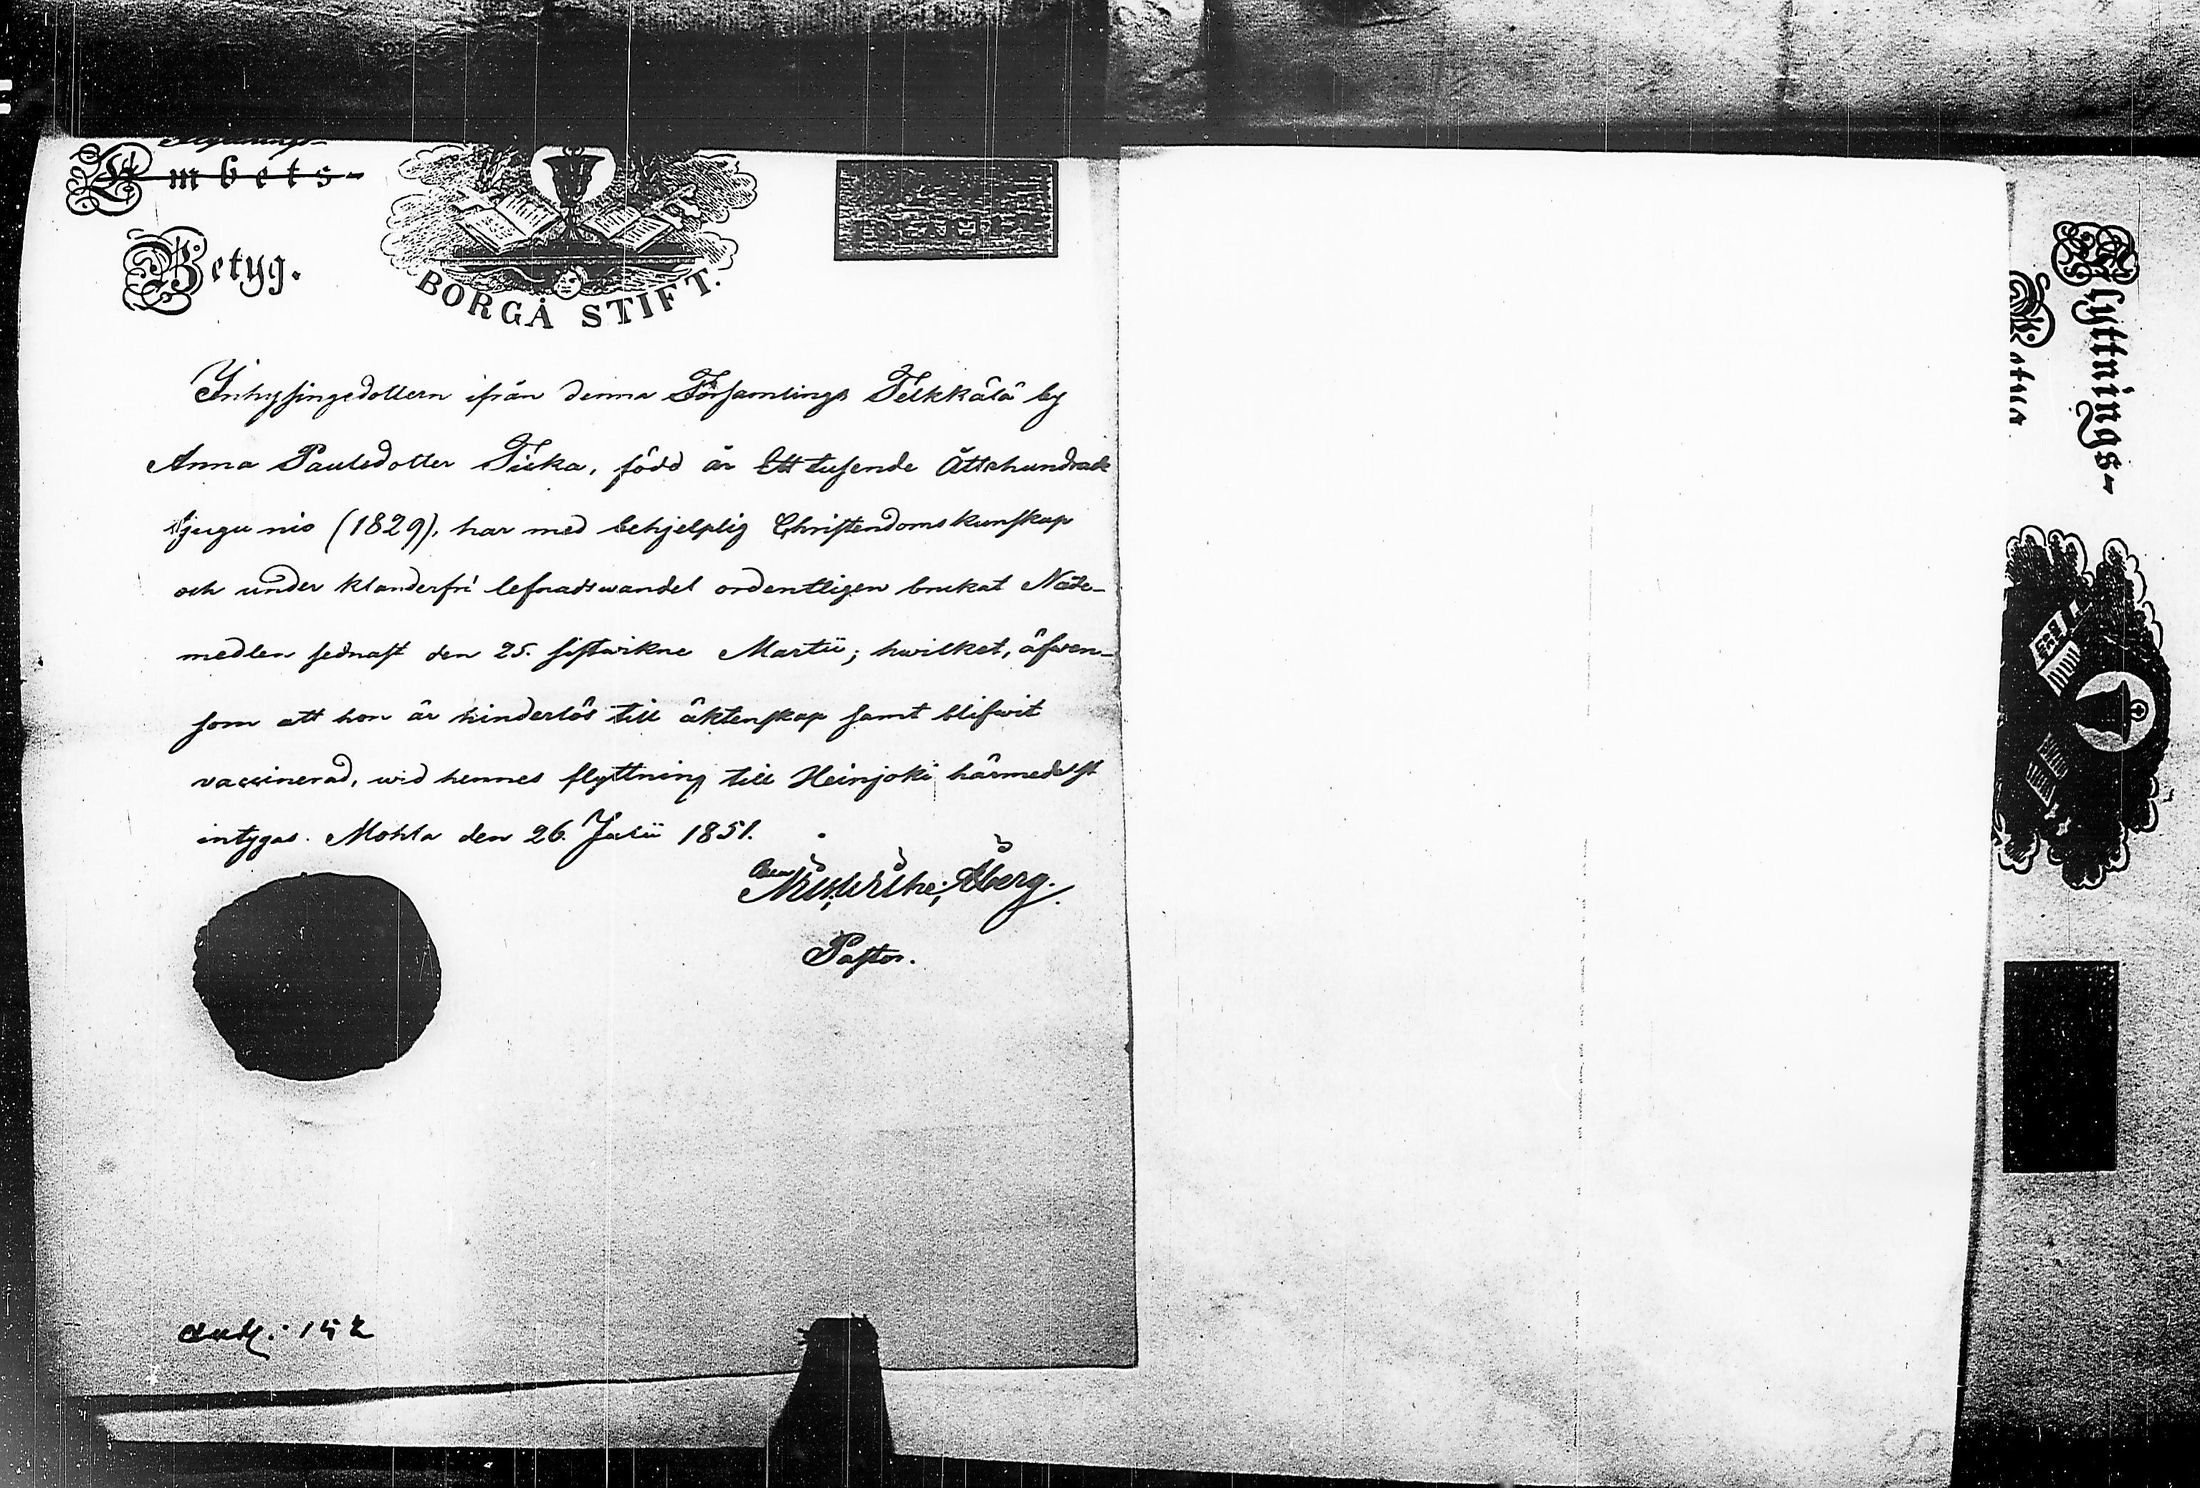 Flyttnings-
Embets-
Betyg.
BORGÅ STIFT.
Inhysingedottern ifrån denna Församlings Telkkälä by
Anna Paulsdotter Tiska, född år Ett tusende Åttahundrade
tjugu nio (1829), har med behjelplig Christendomskunskap
och under klanderfri lefnadswandel ordentligen brukat Nåde-
medlen sednast den 25. sistwikne Martii; hwilket, äfwen-
som att hon är hinderlös till äktenskap samt blifwit
vaccinerad, wid hennes flyttning till Heinjoki härmedelst
intygas. Mohla den 26. Julii 1851.
Åberg.
Pastor.
152
Flyttnings-